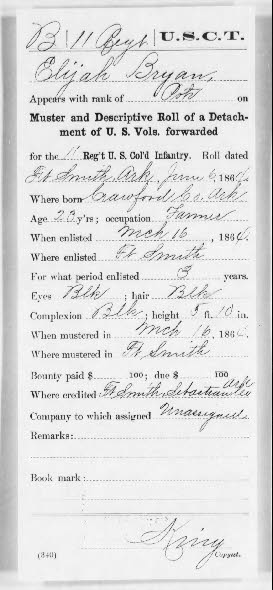 B | 11 Regt | U.S.C.T.
Elijah Bryan,
Appears with rank of Pvt on
Muster and Descriptive Roll of a Detach-
ment of U. S. Vols. forwarded
for the 11 Reg't U. S. Col'd Infantry. Roll dated
Ft Smith, Ark, June 6, 1864.
Where born Crawford Co. Ark
Age 23 y'rs; occupation Farmer
When enlisted Mch 16, 1864.
Where enlisted Ft Smith
For what period enlisted 3 years.
Eyes Blk; hair Blk
Complexion Blk; height 5 ft. 10 in.
When mustered in Mch 16, 1864.
Where mustered in Ft Smith
Bounty paid $ 100; due $ 100
Where credited Ft Smith, Sebastian Co Ark
Company to which assigned Unassigned
Remarks:
Book mark:
King
(340) Copyist.